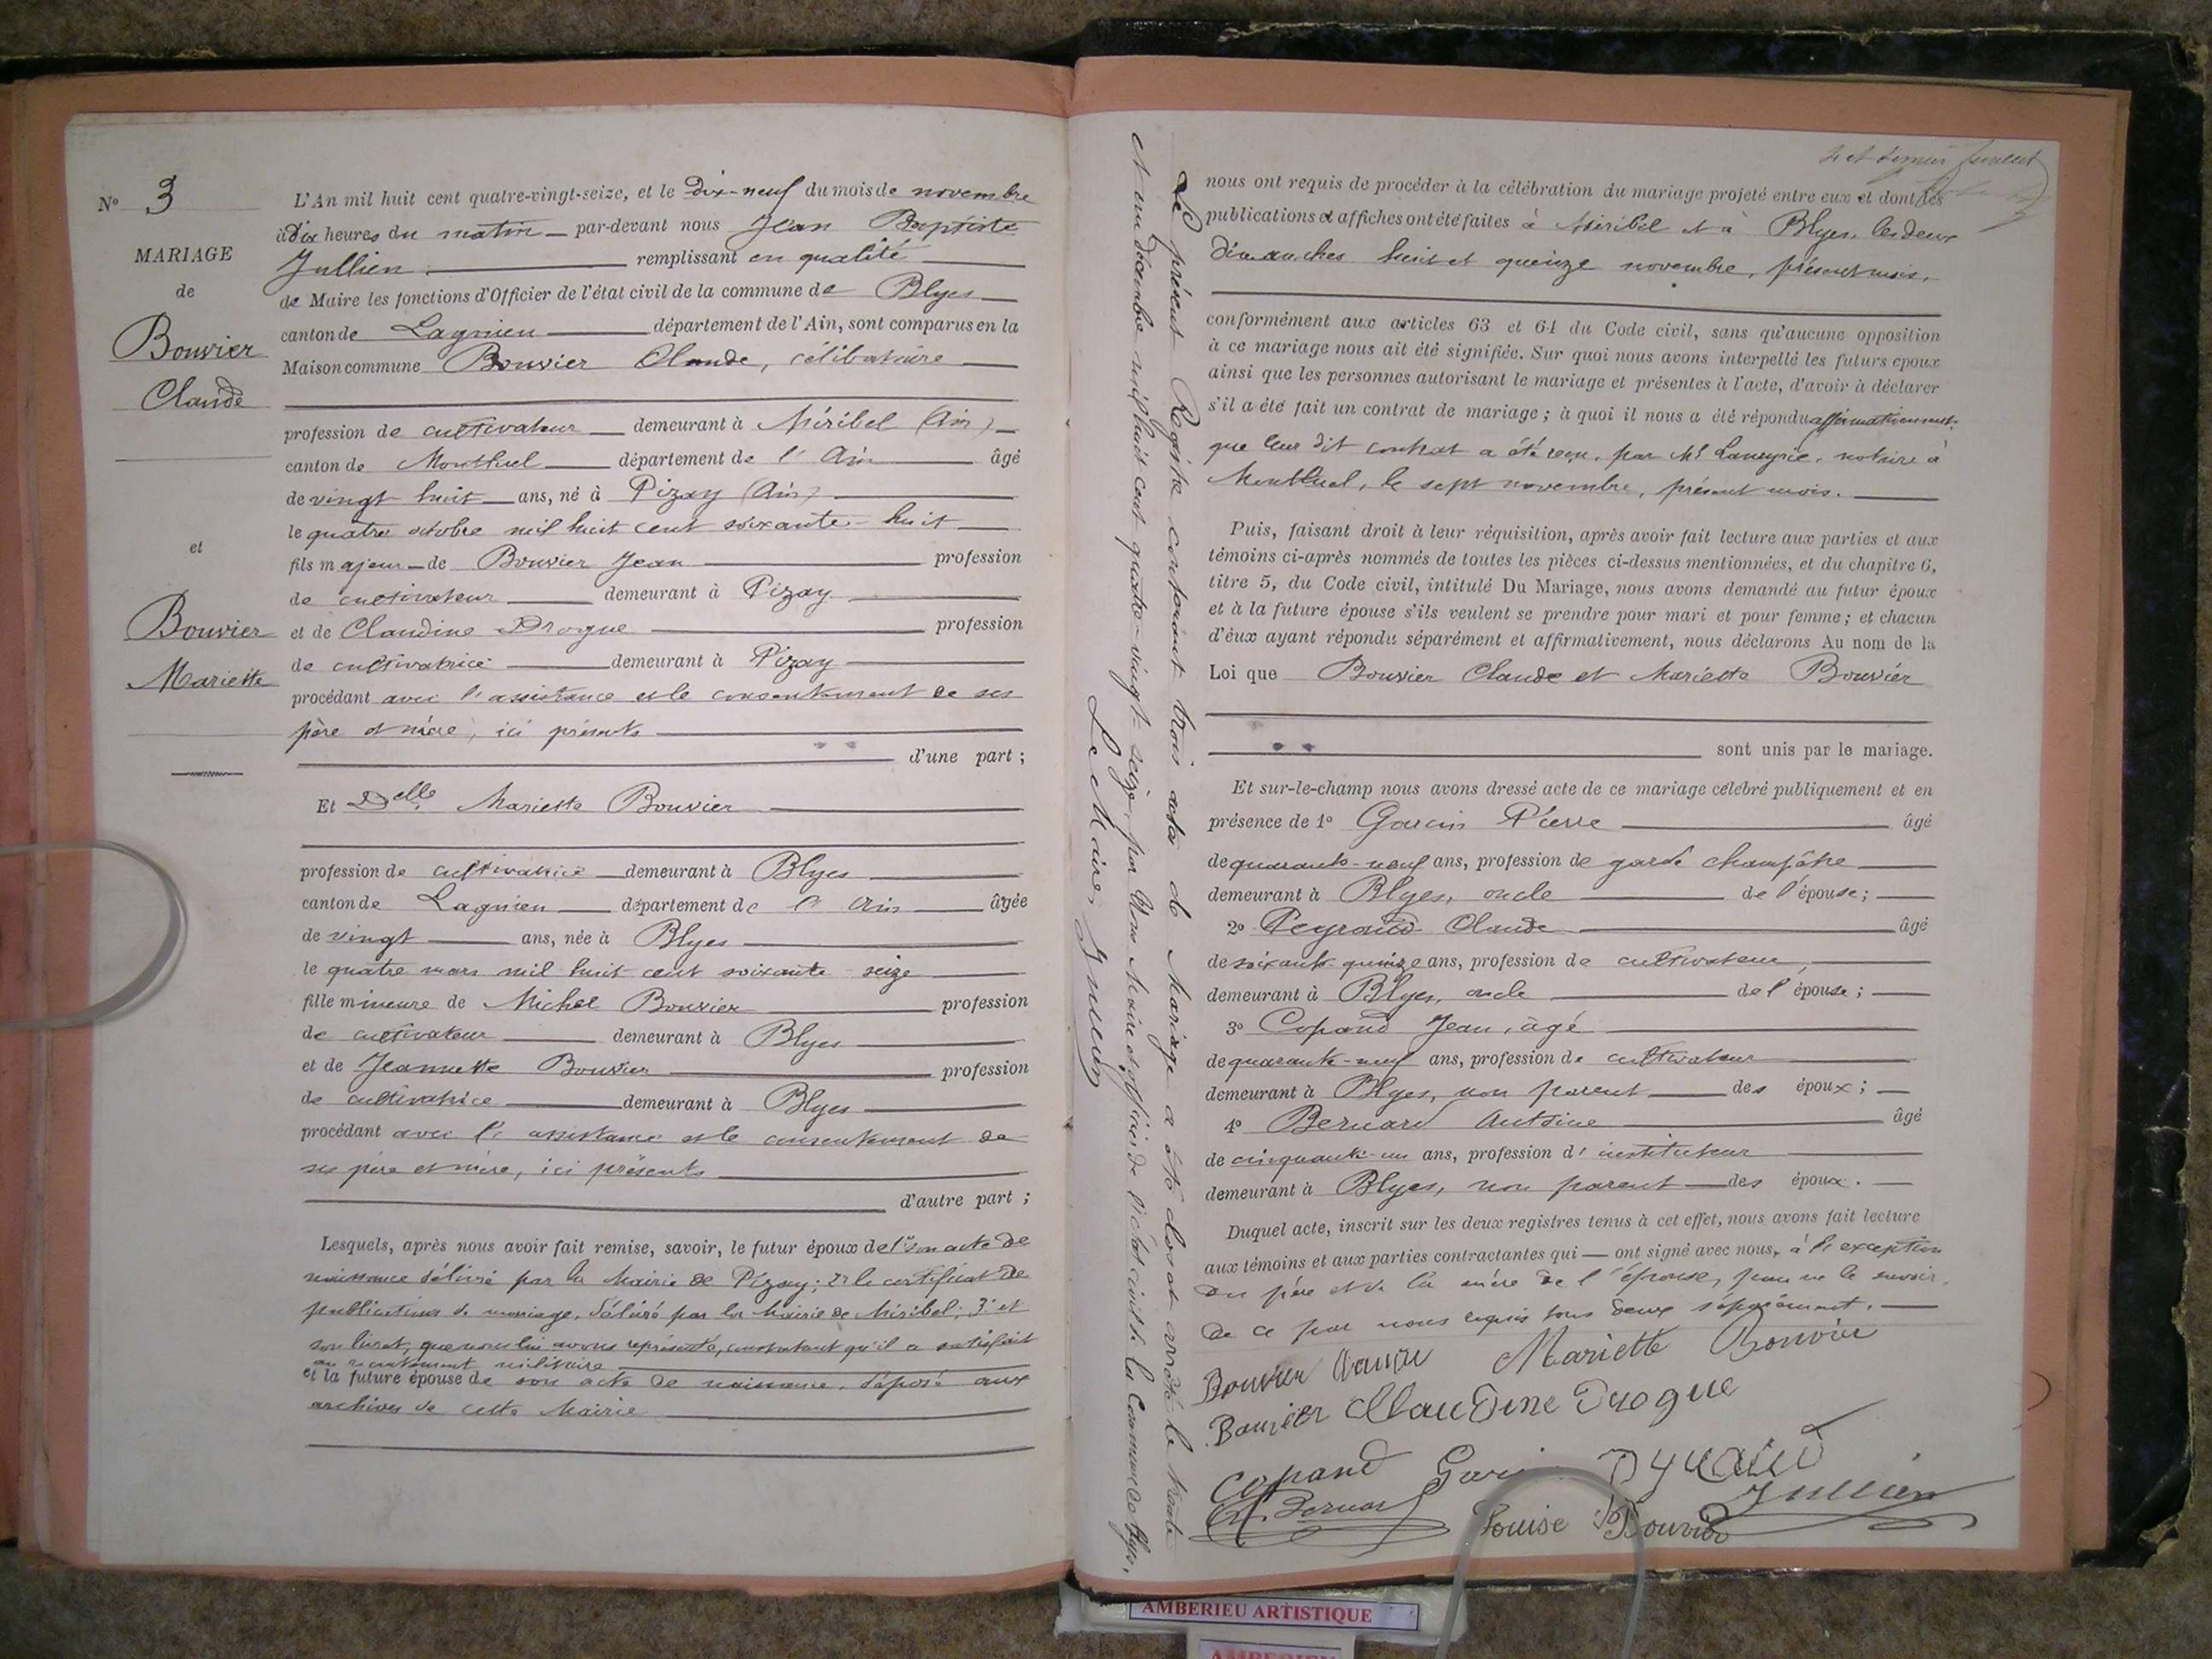 N° 3
MARIAGE
de
Bouvier
Claude
et
Bouvier
Mariette
L'An mil huit cent quatre-vingt-seize, et le dix-neuf du mois de novembre
à dix heures du matin par-devant nous Jean Baptiste
Jullien remplissant en qualité
de Maire les fonctions d'Officier de l'état civil de la commune de Blyes
canton de Lagnieu département de l'Ain, sont comparus en la
Maison commune Bouvier Claude, célibataire
profession de cultivateur demeurant à Miribel (Ain)
canton de Montluel département de l'Ain âgé
de vingt huit ans, né à Pizay (Ain)
le quatre octobre mil huit cent soixante-huit
fils majeur de Bouvier Jean profession
de cultivateur demeurant à Pizay
et de Claudine Drogue profession
de cultivatrice demeurant à Pizay
procédant avec l'assistance et le consentement de ses
père et mère, ici présents
d'une part ;
Et Delle Mariette Bouvier
profession de cultivatrice demeurant à Blyes
canton de Lagnieu département de l'Ain âgée
de vingt ans, née à Blyes
le quatre mars mil huit cent soixante seize
fille mineure de Michel Bouvier profession
de cultivateur demeurant à Blyes
et de Jeannette Bouvier profession
de cultivatrice demeurant à Blyes
procédant avec l'assistance et le consentement de
ses père et mère, ici présents
d'autre part ;
Lesquels, après nous avoir fait remise, savoir, le futur époux de 1° son acte de
naissance délivré par la Mairie de Pizay; 2° le certificat de
publications de mariage, délivré par la Mairie de Miribel; 3° et
son livret, que nous lui avons représenté, constatant qu'il a satisfait
au recrutement militaire
et la future épouse de son acte de naissance, déposé aux
archives de cette Mairie
4 et dernier feuillet
nous ont requis de procéder à la célébration du mariage projeté entre eux et dont les
publications et affiches ont été faites à Miribel et à Blyes, les deux
dimanches huit et quinze novembre, présent mois,
conformément aux articles 63 et 64 du Code civil, sans qu'aucune opposition
à ce mariage nous ait été signifiée. Sur quoi nous avons interpellé les futurs époux
ainsi que les personnes autorisant le mariage et présentes à l'acte, d'avoir à déclarer
s'il a été fait un contrat de mariage ; à quoi il nous a été répondu affirmativement,
que leur dit contrat a été reçu, par Me Laneyrie, notaire à
Montluel, le sept novembre, présent mois.
Puis, faisant droit à leur réquisition, après avoir fait lecture aux parties et aux
témoins ci-après nommés de toutes les pièces ci-dessus mentionnées, et du chapitre 6,
titre 5, du Code civil, intitulé Du Mariage, nous avons demandé au futur époux
et à la future épouse s'ils veulent se prendre pour mari et pour femme ; et chacun
d'eux ayant répondu séparément et affirmativement, nous déclarons Au nom de la
Loi que Bouvier Claude et Mariette Bouvier
sont unis par le mariage.
Et sur-le-champ nous avons dressé acte de ce mariage célébré publiquement et en
présence de 1° Garcin Pierre âgé
de quarante-neuf ans, profession de garde champêtre
demeurant à Blyes, oncle de l'épouse ;
2° Peyraud Claude âgé
de soixante-quinze ans, profession de cultivateur,
demeurant à Blyes, oncle de l'épouse ;
3° Copand Jean, âgé
de quarante-neuf ans, profession de cultivateur
demeurant à Blyes, non parent des époux ;
4° Bernard Antoine âgé
de cinquante-un ans, profession d'instituteur
demeurant à Blyes, non parent des époux.
Duquel acte, inscrit sur les deux registres tenus à cet effet, nous avons fait lecture
aux témoins et aux parties contractantes qui ont signé avec nous, à l'exception
du père et de la mère de l'épouse, pour ne le savoir,
de ce par nous requis tous deux séparément.
Bouvier Claude Mariette Bouvier
Bouvier Claudine Drogue
Copand Garcin
Jullien
Bernard Louise Bouvier
Le présent Registre contenant trois actes de Mariage a été clos et arrêté le trente
et un décembre mil huit cent quatre-vingt-seize, par Nous Maire et officier de l'état civil de la Commune de Blyes.
Le Maire, Jullien
AMBERIEU ARTISTIQUE
AMBERIEU